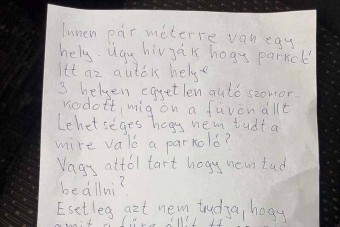 Innen pár méterre van egy
hely. Úgy hívják hogy parkoló
Itt az autók helye
3 helyen egyetlen autó szomor-
kodott, míg ön a füvön állt
Lehetséges hogy nem tudta
mire való a parkoló?
Vagy attól tart hogy nem tud
beállni?
Esetleg azt nem tudja, hogy
amit a fűre állít